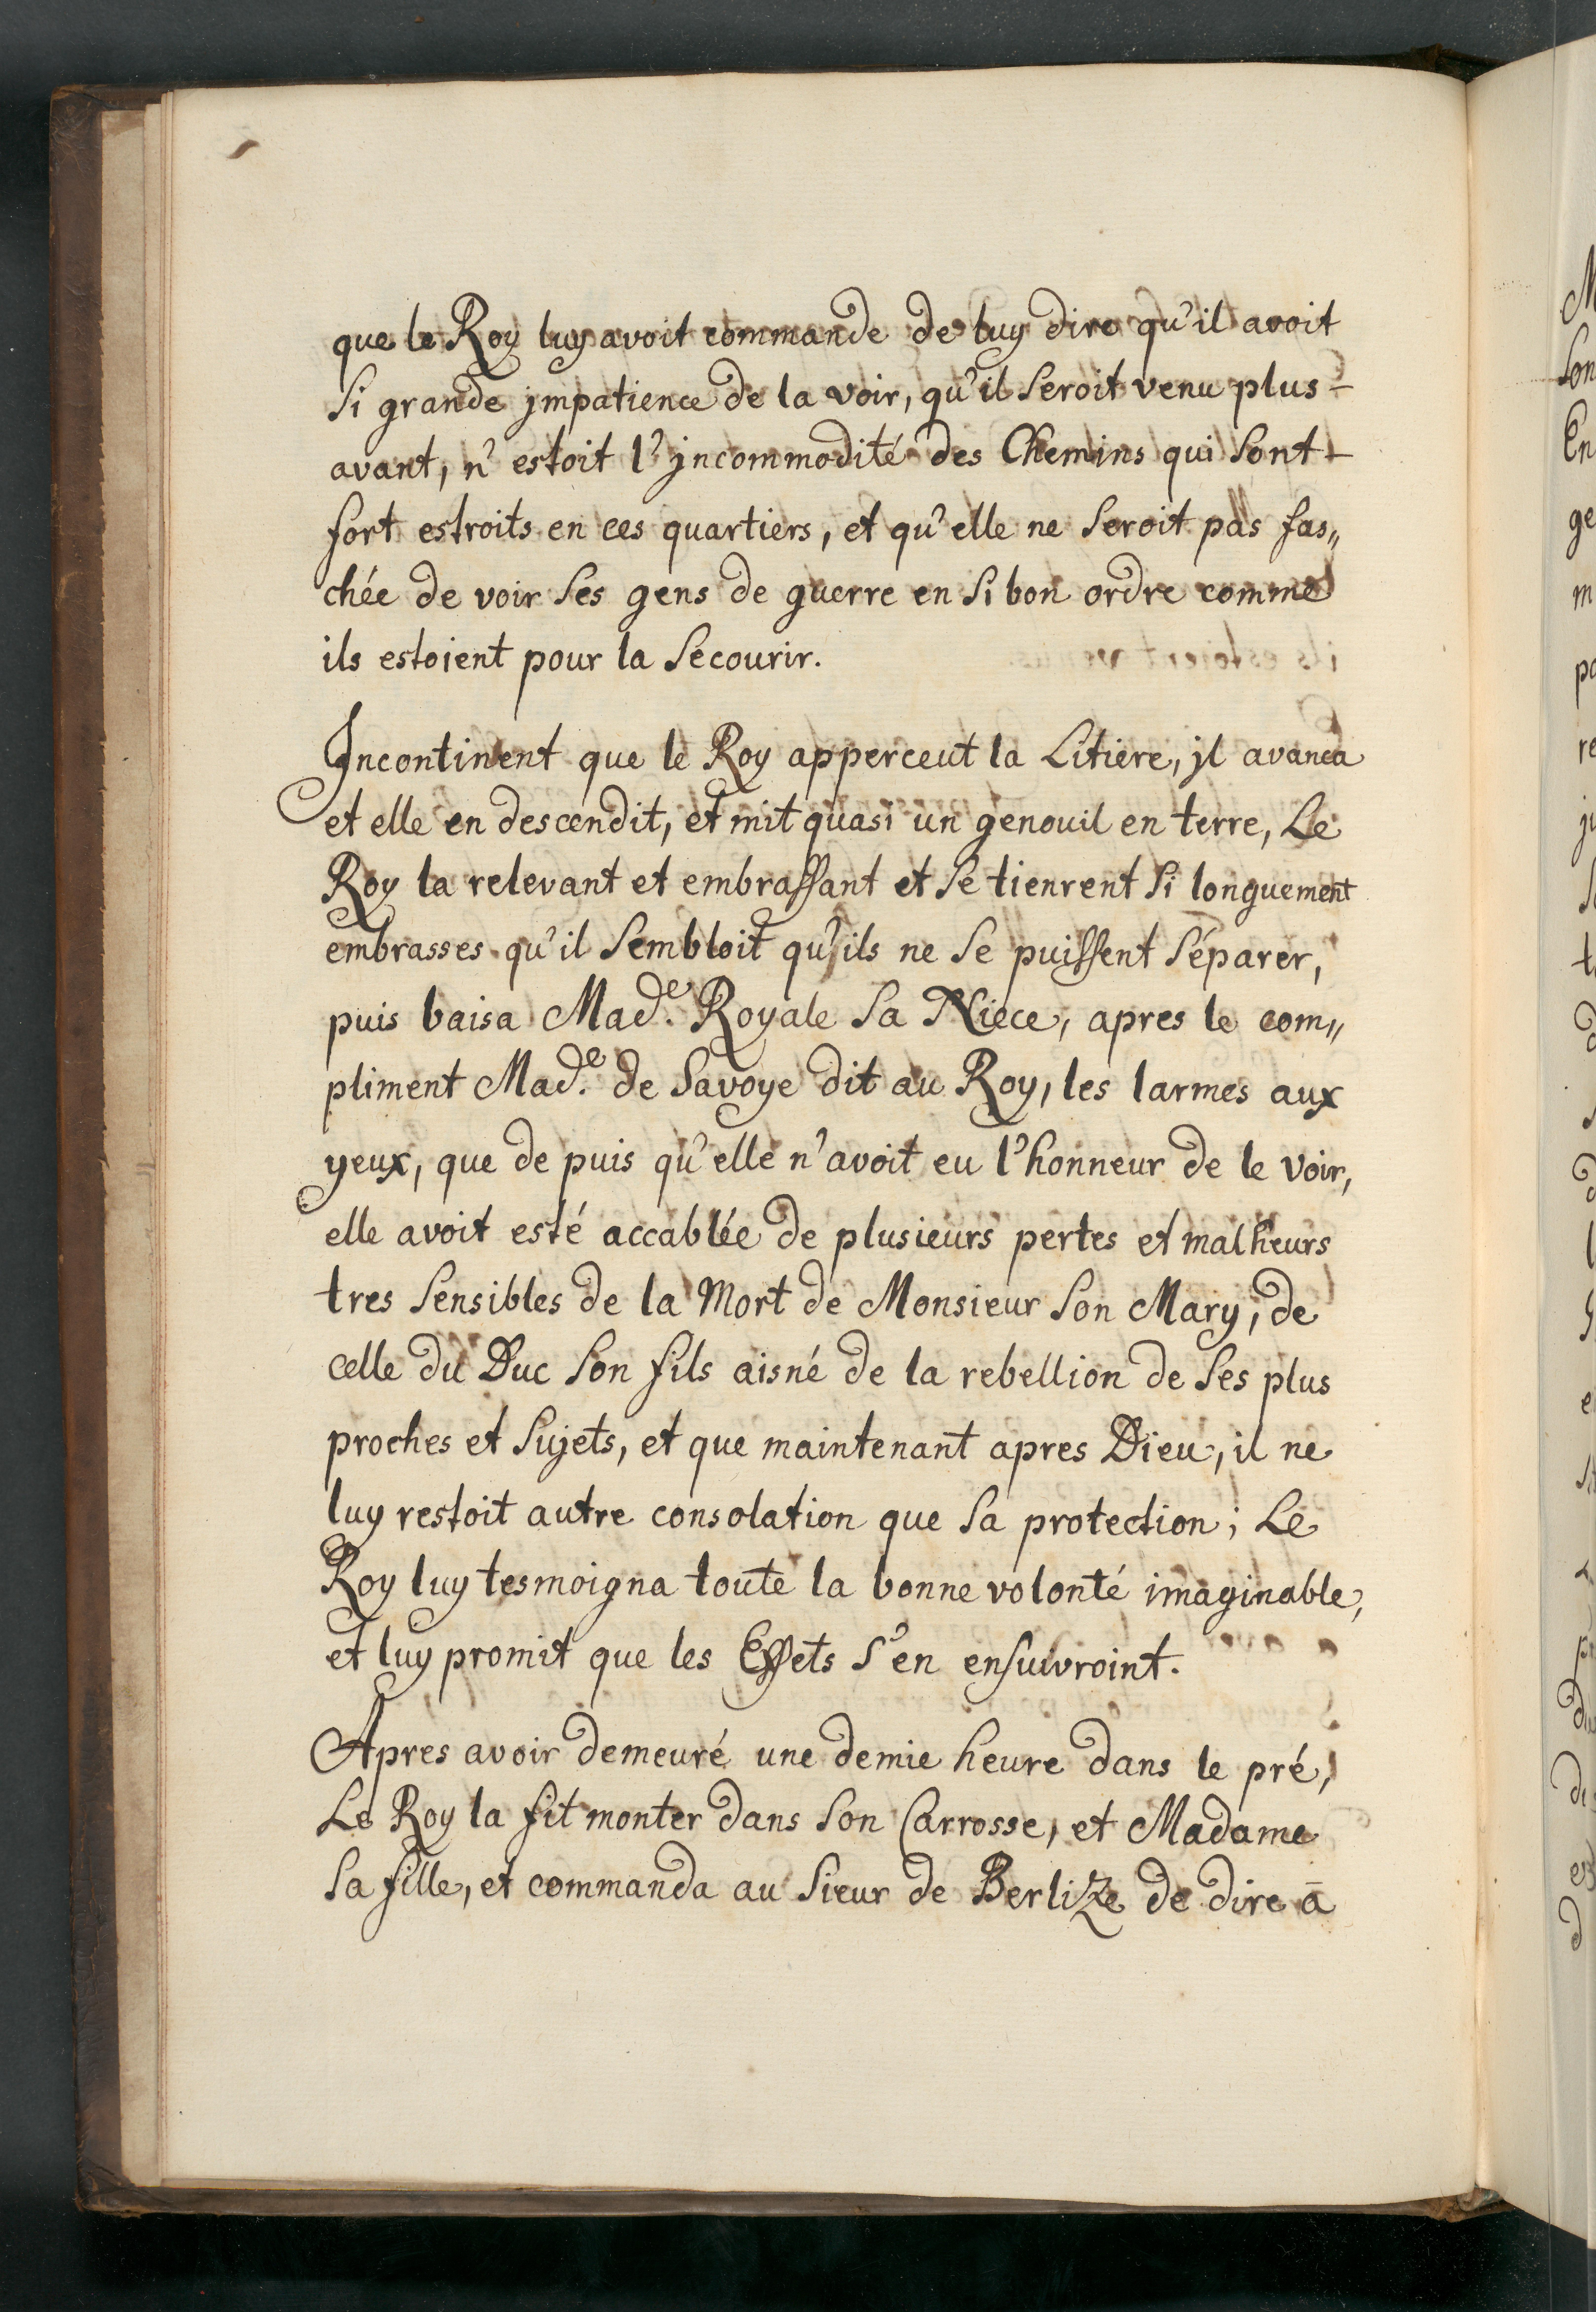 que le Roy luy avoit commande de luy dire qu'il avoit
si grande jmpatience de la voir, qu'il seroit venu plus-
avant, n'estoit l'jncommodité des Chemins qui sont-
fort estroits en ces quartiers, et qu'elle ne seroit pas fas„
chée de voir ses gens de guerre en si bon ordre comme
ils estoient pour la secourir.
Incontinent que le Roy apperceut la Litiere, jl avanca
et elle en descendit, et mit quasi un genouil en terre, Le
Roy la relevant et embrassant et se tienrent si longuement
embrasses qu'il sembloit qu'ils ne se puissent séparer,
puis baisa Mad.e Royale sa Niece, apres le com„
pliment Mad.e de Savoye dit au Roy, les larmes aux
yeux, que de puis qu'elle n'avoit eu l'honneur de le voir,
elle avoit esté accablée de plusieurs pertes et malheurs
tres sensibles de la Mort de Monsieur son Mary, de
celle du Duc son fils aisné de la rebellion de ses plus
proches et sujets, et que maintenant apres Dieu, il ne
luy restoit autre consolation que sa protection; Le
Roy luy tesmoigna toute la bonne volonté imaginable,
et luy promit que les Effets s'en ensuivroint.
Apres avoir demeuré une demie heure dans le pré,
Le Roy la fit monter dans son Carrosse, et Madame
sa fille, et commanda au Sieur de Berlize de dire ā